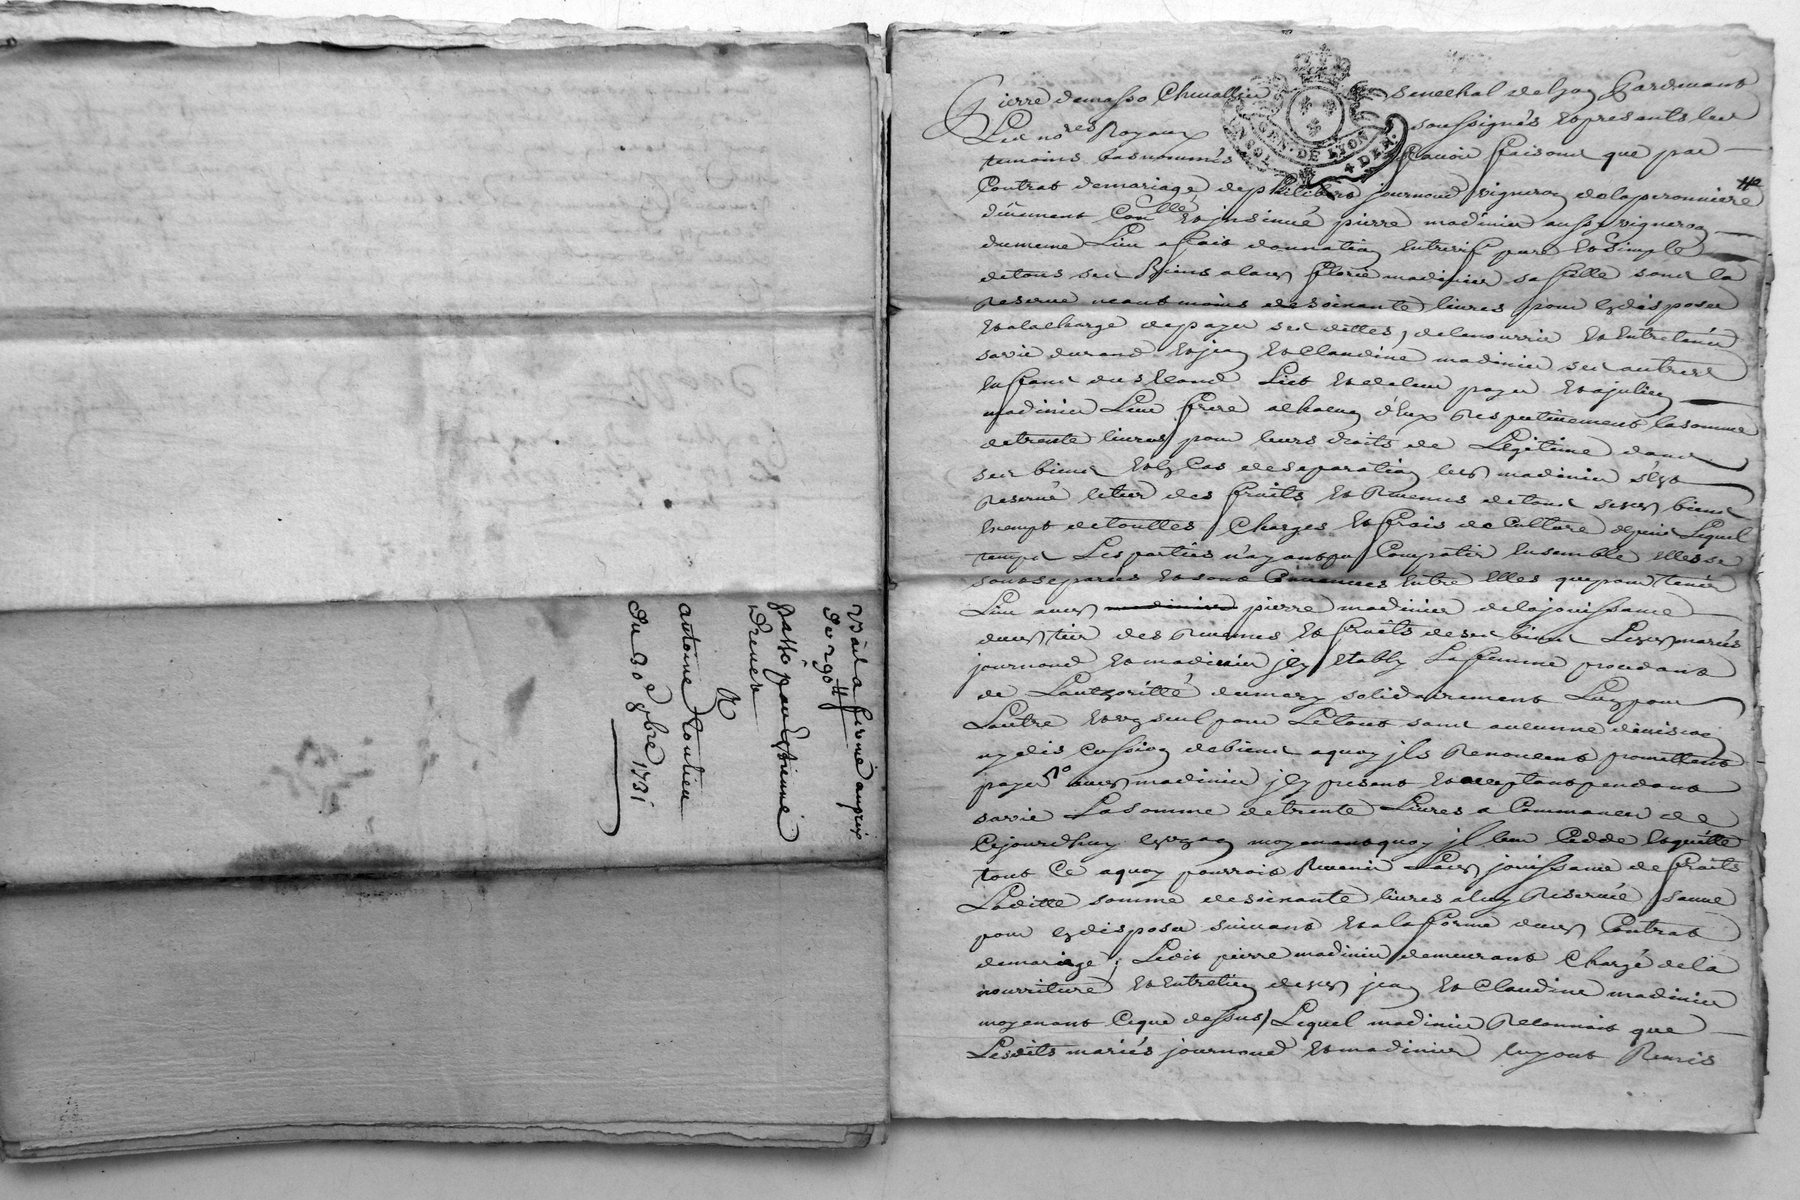 Bail a ferme au prix
de 290ᵗᵗ
passé par Estienne
Drevet
A
antoine
du 30ᵉ 9bre 1731
GEN. DE LION
UN SOL 4 DEN.
Pierre demasso Chevallier senechal de Lyon
Les no.res Royaux soussignés et presents les
temoins basnommés scavoir faisons que par
Contrat demariage de philibert journoud vigneron de la peronniere
düement Con.llé et jnsinué pierre madinier aussy vigneron
dumeme Lieu a fait donnation entrevif pure et simple
detous ses Biens alad. fleurie madinier sa fille sous la
Reserve neantmoins de soixante livres pour en disposer
et alacharge de payer ses dettes, delenourrir et Entretenir
savie durand et jean et Claudine madinier ses autres
enfans Lict et deleur payer et ajulien
madinier Leur frere achacun d'eux Respectivement lasomme
detrente livres pour leurs droits de Legitime dans
ses biens et en Cas deseparation led. madinier s'est
Reservé letier des fruits et Revenus detous sesd. biens
Exempt detouttes Charges et frais de Culture depuis Lequel
temps Les parties n'ayant pu Compatir Ensemble Elles se
sont separées et sont Convenues Entre Elles que pour tenir
Lieu aud. pierre madinier delajouissance
dud. tier des Revenus et fruits de ses biens Lesd. mariés
journoud et madinier jcy etably La femme procedant
de Lauthoritté dumary solidairement Lun pour
Lautre et un seul pour Letout sans aucunne division
ny discussion debiens aquoy jls Renoncent promettent
payer aud. madinier jcy present et acceptant pendant
savie Lasomme detrente Livres a Commancer de
Cejourdhuy en un an moyenant quoy jl leur Cedde et quitte
tout Ce aquoy pourroit Revenir Lad. jouissance de fruits
Laditte somme de soixante livres aluy Reservée sauve
pour en disposer suivant et ala forme dud. Contrat
demariage; Ledit pierre madinier demeurant Chargé dela
nourriture et Entretien desd. jean et Claudine madinier
moyenant Ceque dessus/ Lequel madinier Reconnait que
Lesdits mariés journoud et madinier luy ont Remis